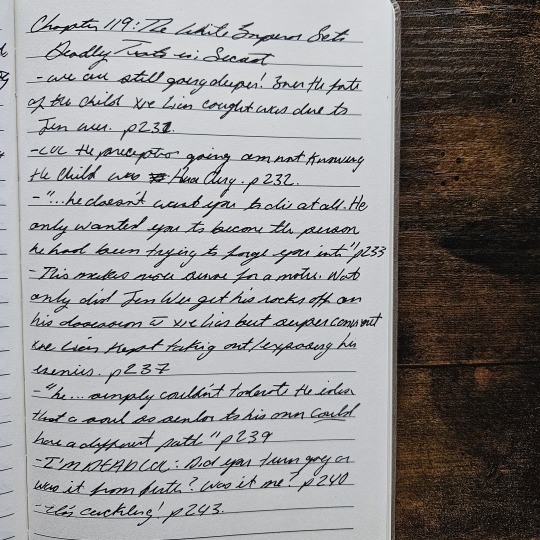 Chapter 119: The White Emperor Sets
Deadly Traits in Secret
- we are still going deeper! Even the fate
of the child Xie Lian caught was due to
Jun Wu. p231.
- LOL the preceptor going on not knowing
the child was Hua Cheng. p232.
- "...he doesn't want you to die at all. He
only wanted you to become the person
he had been trying to forge you into" p233
- This makes more sense for a motive. Not
only did Jun Wu get his rocks off on
his obsession w Xie Lian but super convenient
Xie Lian kept taking out/exposing his
enemies. p237
- "he... simply couldn't tolerate the idea
that a soul so similar to his own could
have a different path" p239
- I'M DEAD LOL: Did you turn gay or
was it from birth? Was it me? p240
- He's cackling! p243.